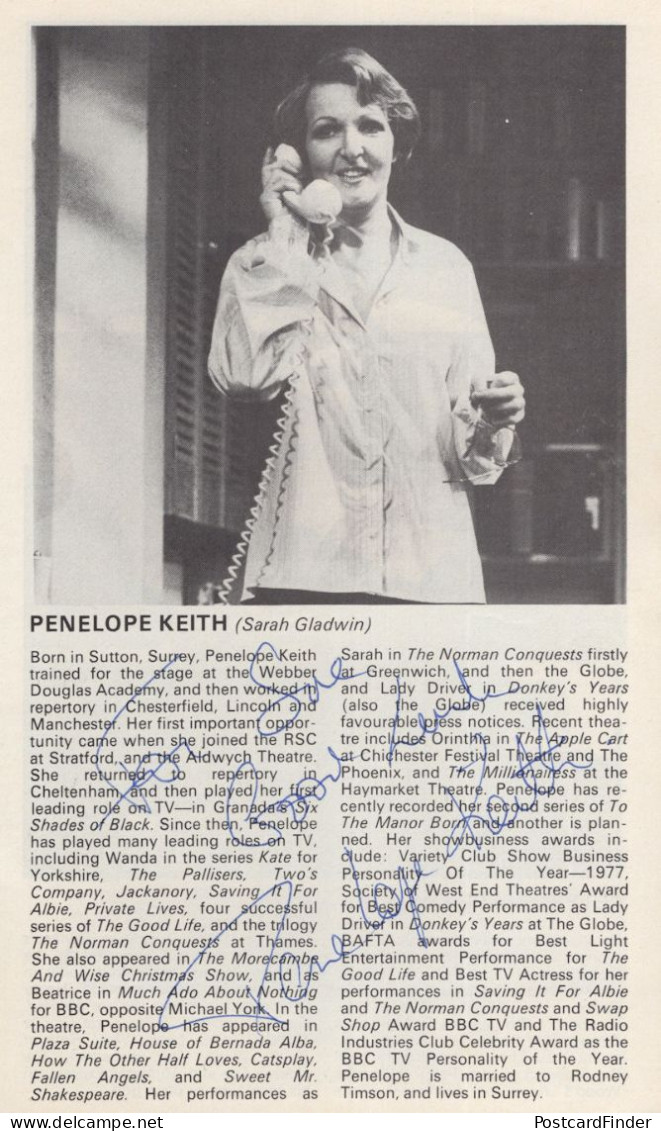 PENELOPE KEITH (Sarah Gladwin)
Born in Sutton, Surrey, Penelope Keith
trained for the stage at the Webber
Douglas Academy, and then worked in
repertory in Chesterfield, Lincoln and
Manchester. Her first important oppor-
tunity came when she joined the RSC
at Stratford, and the Aldwych Theatre.
She returned to repertory in
Cheltenham and then played her first
leading role on TV—in Granada's Six
Shades of Black. Since then, Penelope
has played many leading roles on TV,
including Wanda in the series Kate for
Yorkshire, The Pallisers, Two's
Company, Jackanory, Saving It For
Albie, Private Lives, four successful
series of The Good Life, and the trilogy
The Norman Conquests at Thames.
She also appeared in The Morecambe
And Wise Christmas Show, and as
Beatrice in Much Ado About Nothing
for BBC, opposite Michael York. In the
theatre, Penelope has appeared in
Plaza Suite, House of Bernada Alba,
How The Other Half Loves, Catsplay,
Fallen Angels, and Sweet Mr.
Shakespeare. Her performances as
Sarah in The Norman Conquests firstly
at Greenwich, and then the Globe,
and Lady Driver in Donkey's Years
(also the Globe) received highly
favourable press notices. Recent thea-
tre includes Orinthia in The Apple Cart
at Chichester Festival Theatre and The
Phoenix, and The Millionairess at the
Haymarket Theatre. Penelope has re-
cently recorded her second series of To
The Manor Born and another is plan-
ned. Her showbusiness awards in-
clude: Variety Club Show Business
Personality Of The Year—1977,
Society of West End Theatres' Award
for Best Comedy Performance as Lady
Driver in Donkey's Years at The Globe,
BAFTA Awards for Best Light
Entertainment Performance for The
Good Life and Best TV Actress for her
performances in Saving It For Albie
and The Norman Conquests and Swap
Shop Award BBC TV and The Radio
Industries Club Celebrity Award as the
BBC TV Personality of the Year.
Penelope is married to Rodney
Timson, and lives in Surrey.
For Sue
Good Luck
Penelope Keith
PostcardFinder